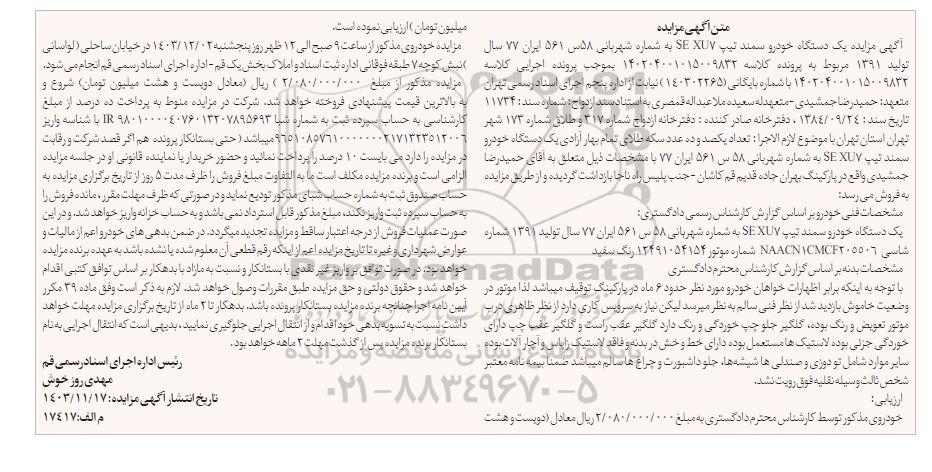 متن آگهی مزایده
آگهی مزایده یک دستگاه خودرو سمند تیپ SE XU۷ به شماره شهربانی ۵۸س ۵۶۱ ایران ۷۷ سال
تولید ۱۳۹۱ مربوط به پرونده کلاسه ۱۴۰۲۰۴۰۰۱۰۱۵۰۰۹۸۳۲ بموجب پرونده اجرایی کلاسه
۱۴۰۲۰۴۰۰۱۰۱۵۰۰۹۸۳۲ با شماره بایگانی (۱۴۰۳۰۲۲۶۵) نیابت از اداره پنجم اجرای اسناد رسمی تهران
متعهد: حمیدرضا جمشیدی -متعهدله سعیده ملاعبداله قمصری به استناد سند ازدواج: شماره سند: ۱۱۷۳۴
تاریخ سند : ۱۳۸۴/۰۹/۲۴ ، دفترخانه صادر کننده : دفترخانه ازدواج شماره ۳۱۷ و طلاق شماره ۱۷۳ شهر
تهران استان تهران با موضوع لازم الاجرا : تعداد یکصد و ده عدد سکه طلای تمام بهار آزادی یک دستگاه خودرو
سمند تیپ SE XU۷ به شماره شهربانی ۵۸ س ۵۶۱ ایران ۷۷ با مشخصات ذیل متعلق به آقای حمیدرضا
جمشیدی واقع در پارکینگ بهران جاده قدیم قم کاشان - جنب پلیس راه ناجا بازداشت گردیده و از طریق مزایده
به فروش می رسد:
مشخصات فنی خودرو بر اساس گزارش کارشناس رسمی دادگستری:
یک دستگاه خودرو سمند تیپ SE XU۷ به شماره شهربانی ۵۸ س ۵۶۱ ایران ۷۷ سال تولید ۱۳۹۱ شماره
شاسی NAACN۱CMCF۲۰۵۵۰۶ شماره موتور ۱۲۴۹۱۰۵۴۱۵۴ رنگ سفید
مشخصات بدنه بر اساس گزارش کارشناس محترم دادگستری
با توجه به اینکه برابر اظهارات خواهان خودرو مورد نظر حدود ۶ ماه در پارکینگ توقیف میباشد لذا موتور در
وضعیت خاموش بازدید شد از نظر فنی سالم به نظر میرسد لیکن نیاز به سرویس کاری دارد از نظر ظاهری درب
موتور تعویض و رنگ بوده، گلگیر جلو چپ خوردگی و رنگ دارد گلگیر عقب راست و گلگیر عقب چپ دارای
خوردگی جزئی بوده لاستیک ها مستعمل بوده دارای خط و خش در بدنه و فاقد لاستیک زاپاس و آچار آلات بوده
سایر موارد شامل تو دوزی و صندلی ها شیشه‌ها، جلو داشبورت و چراغ ها سالم میباشد ضمنا بیمه نامه معتبر
شخص ثالث وسیله نقلیه فوق رویت نشد.
ارزیابی:
خودروی مذکور توسط کارشناس محترم دادگستری به مبلغ ۲/۰۸۰/۰۰۰/۰۰۰ ریال معادل (دویست و هشت
میلیون تومان ) ارزیابی نموده است.
مزایده خودروی مذکور از ساعت ۹ صبح الی ۱۲ ظهر روز پنجشنبه ۱۴۰۳/۱۲/۰۲ در خیابان ساحلی (لواسانی
) نبش کوچه ۷ طبقه فوقانی اداره ثبت اسناد و املاک بخش یک قم - اداره اجرای اسناد رسمی قم انجام می شود.
مزایده مذکور از مبلغ ۲/۰۸۰/۰۰۰/۰۰۰ ) ریال (معادل دویست و هشت میلیون تومان) شروع و
به بالاترین قیمت پیشنهادی فروخته خواهد شد. شرکت در مزایده منوط به پرداخت ده درصد از مبلغ
کارشناسی به حساب سپرده ثبت به شماره شبا IR ۹۸۰۱۰۰۰۰۴۰۷۶۰۱۳۲۰۷۸۹۵۶۹۳ با شناسه واریز
۹۶۵۱۰۸۵۷۶۱۰۰۰۰۰۰۰۲۱۷۱۳۲۳۵۱۲۰۰۶ میباشد (حتی بستانکار پرونده هم اگر قصد شرکت و رقابت
در مزایده را دارد می بایست ۱۰ درصد را پرداخت نمائید و حضور خریدار یا نماینده قانونی او در جلسه مزایده
الزامی است و برنده مزایده مکلف است ما به التفاوت مبلغ فروش را ظرف مدت ۵ روز از تاریخ برگزاری مزایده به
حساب صندوق ثبت به شماره حساب شبای مذکور تودیع نماید و در صورتی که ظرف مهلت مقرر ، مانده فروش را
به حساب سپرده ثبت واریز نکند، مبلغ مذکور قابل استرداد نمی باشد و به حساب خزانه واریز خواهد شد. و در این
صورت عملیات فروش از درجه اعتبار ساقط و مزایده تجدید میگردد. در ضمن بدهی های خودرو اعم از مالیات و
عوارض شهرداری و غیره تا تاریخ مزایده اعم از اینکه رقم قطعی آن معلوم شده یا نشده باشد به عهده برنده مزایده
خواهد بود. در صورت توافق بر واریز غیر نقدی با بستانکار و نسبت به مازاد با بدهکار بر اساس توافق کتبی اقدام
خواهد شد و حقوق دولتی و حق مزایده طبق مقررات وصول خواهد شد. لازم به ذکر است وفق ماده ۳۹ مکرر
آیین نامه اجرا چنانچه برنده مزایده بستانکار پرونده باشد، بدهکار تا ۲ ماه از تاریخ برگزاری مزایده مهلت خواهد
داشت نسبت به تسویه بدهی خود اقدام و از انتقال اجرایی جلوگیری نمایید ، بدیهی است که انتقال اجرایی به نام
بستانکار برنده مزایده پس از گذشت مهلت ۲ ماهه خواهد بود.
رئیس اداره اجرای اسناد رسمی قم
مهدی روز خوش
تاریخ انتشار آگهی مزایده: ۱۴۰۳/۱۱/۱۷
م الف: ۱۷۴۱۷
ParsNamadData
۰۲۱-۸۸۳۴۹۶۷۰-۵